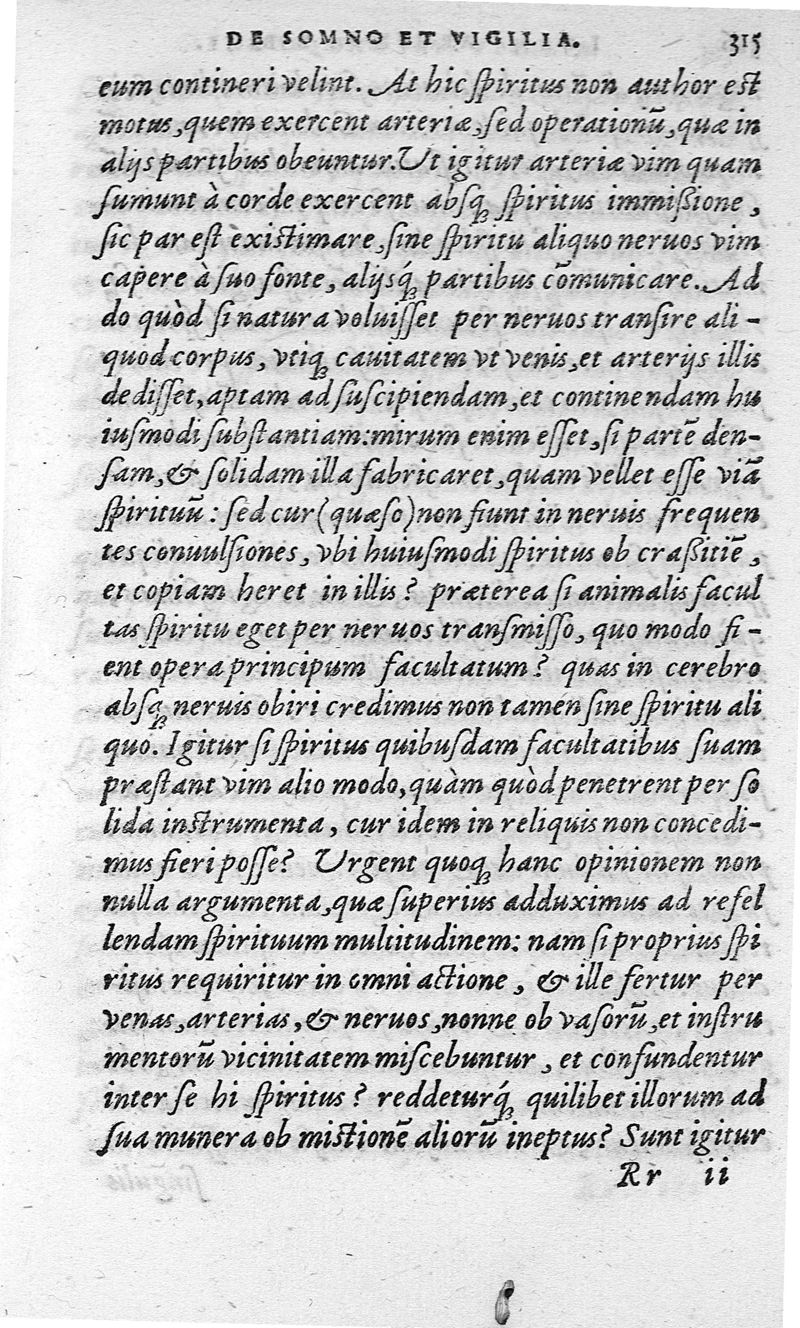 DE SOMNO ET VIGILIA. 315
eum contineri velint. At hic ſpiritus non author eſt
motus, quem exercent arteriæ, ſed operationũ, quæ in
alijs partibus obeuntur. Ut igitur arteriæ vim quam
ſumunt à corde exercent abſq́ ſpiritus immißione,
ſic par eſt exiſtimare, ſine ſpiritu aliquo neruos vim
capere à ſuo fonte, alijsq́ partibus cõmunicare. Ad
do quòd ſi natura voluiſſet per neruos tranſire ali-
quod corpus, vtiq́ cauitatem vt venis, et arterijs illis
dediſſet, aptam ad ſuſcipiendam, et continendam hu
iuſmodi ſubſtantiam: mirum enim eſſet, ſi partẽ den-
ſam, & ſolidam illa fabricaret, quam vellet eſſe viã
ſpirituũ: ſed cur (quæſo) non fiunt in neruis frequen
tes conuulſiones, vbi huiuſmodi ſpiritus ob craßitiẽ,
et copiam heret in illis? præterea ſi animalis facul
tas ſpiritu eget per neruos tranſmiſſo, quo modo fi-
ent opera principum facultatum? quas in cerebro
abſq́ neruis obiri credimus non tamen ſine ſpiritu ali
quo. Igitur ſi ſpiritus quibuſdam facultatibus ſuam
præſtant vim alio modo, quàm quòd penetrent per ſo
lida inſtrumenta, cur idem in reliquis non concedi-
mus fieri poſſe? Urgent quoq́ hanc opinionem non
nulla argumenta, quæ ſuperius adduximus ad refel
lendam ſpirituum multitudinem: nam ſi proprius ſpi
ritus requiritur in omni actione, & ille fertur per
venas, arterias, & neruos, nonne ob vaſorũ, et inſtru
mentorũ vicinitatem miſcebuntur, et confundentur
inter ſe hi ſpiritus? reddeturq́ quilibet illorum ad
ſua munera ob miſtionẽ aliorũ ineptus? Sunt igitur
Rr ii